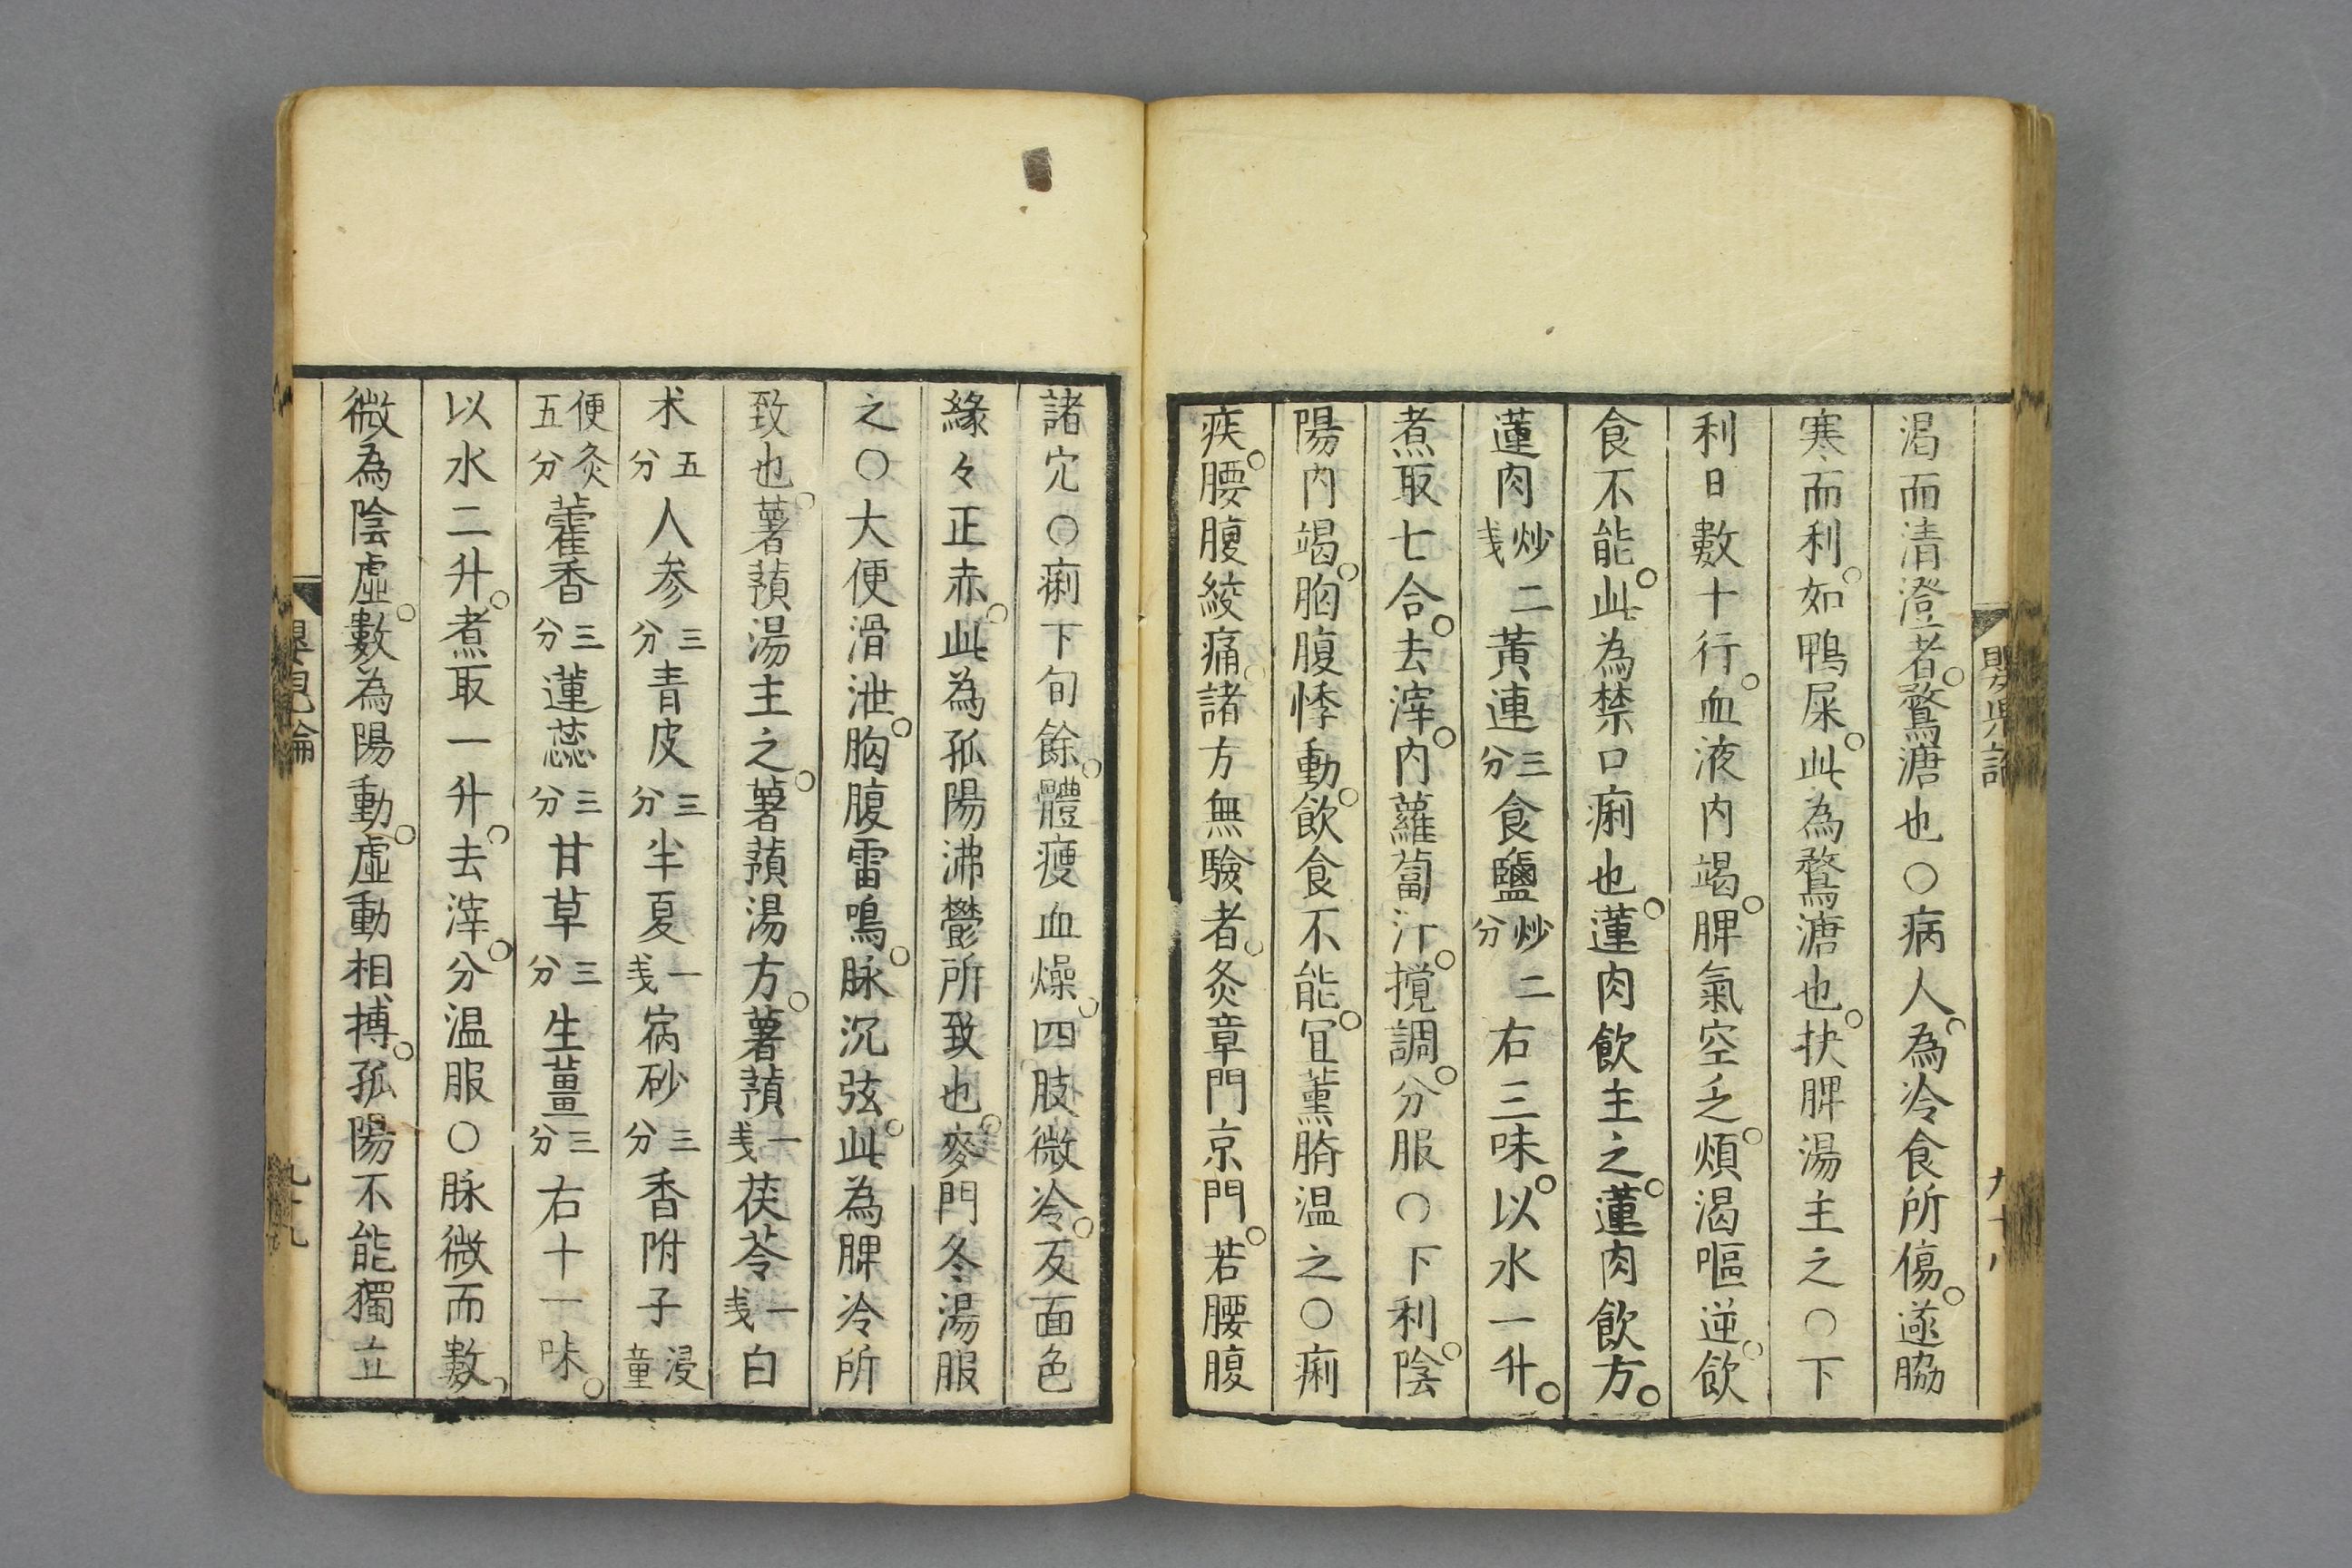 渴而清澄者鶩溏也○病人為冷食所傷遂脇
寒而利如鴨屎此為鶩溏也抉脾湯主之○下
利日數十行血液内竭脾氣空乏煩渴嘔逆飲
食不能此為禁口痢也蓮肉飲主之蓮肉飲方
蓮肉炒二戔黃連三分食鹽炒二分右三味以水一升
煮取七合去滓内蘿蔔汁攪調分服○下利陰
陽内竭胸腹悸動飲食不能冝薰臍温之○痢
疾腰腹絞痛諸方無驗者灸章門京門若腰腹
諸穴○痢下旬餘體瘦血燥四肢微冷反面色
緣々正赤此為孤陽沸鬱所致也麥門冬湯服
之○大便滑泄胸腹雷鳴脉沉弦此為脾冷所
致也薯蕷湯主之薯蕷湯方薯蕷一戔茯苓一戔白
术五分人参三分青皮三分半夏一戔宿砂三分香附子浸童
便灸五分藿香三分蓮蕊三分甘草三分生薑三分右十一味
以水二升煮取一升去滓分温服○脉微而數
微為陰虛數為陽動虛動相搏孤陽不能獨立
嬰兒論
九十九